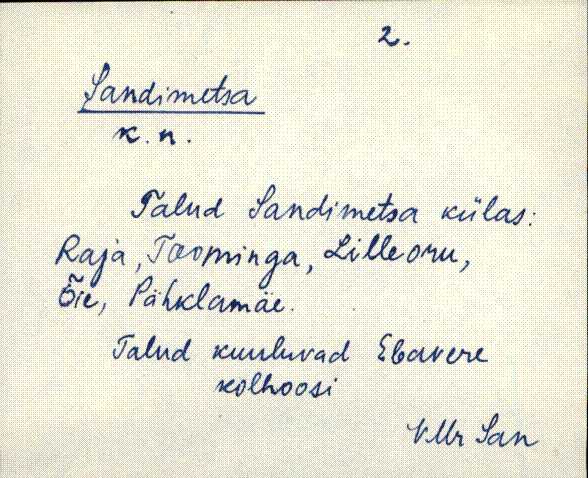 2.
Sandimetsa
k.n.
Talud Sandimetsa külas:
Raja, Toominga, Lilleoru,
Õie, Pähklamäe.
Talud kuuluvad Ebavere
kolhoosi
VMr San